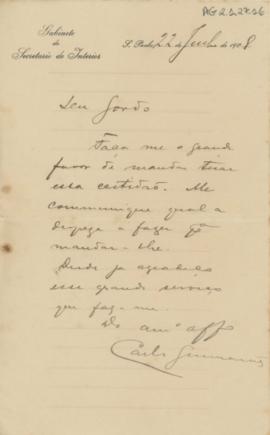 Gabinete
do
Secretario do Interior
S. Paulo, 22 de Junho de 1908
Seu Gordo
Faça me o grande
favor de mandar tirar
essa certidão. Me
communique qual a
despeza a fazer
mandar-lhe.
Desde já agradeço
esse grande serviço
que faz-me.
Do amº affº
Carlos Guimarães